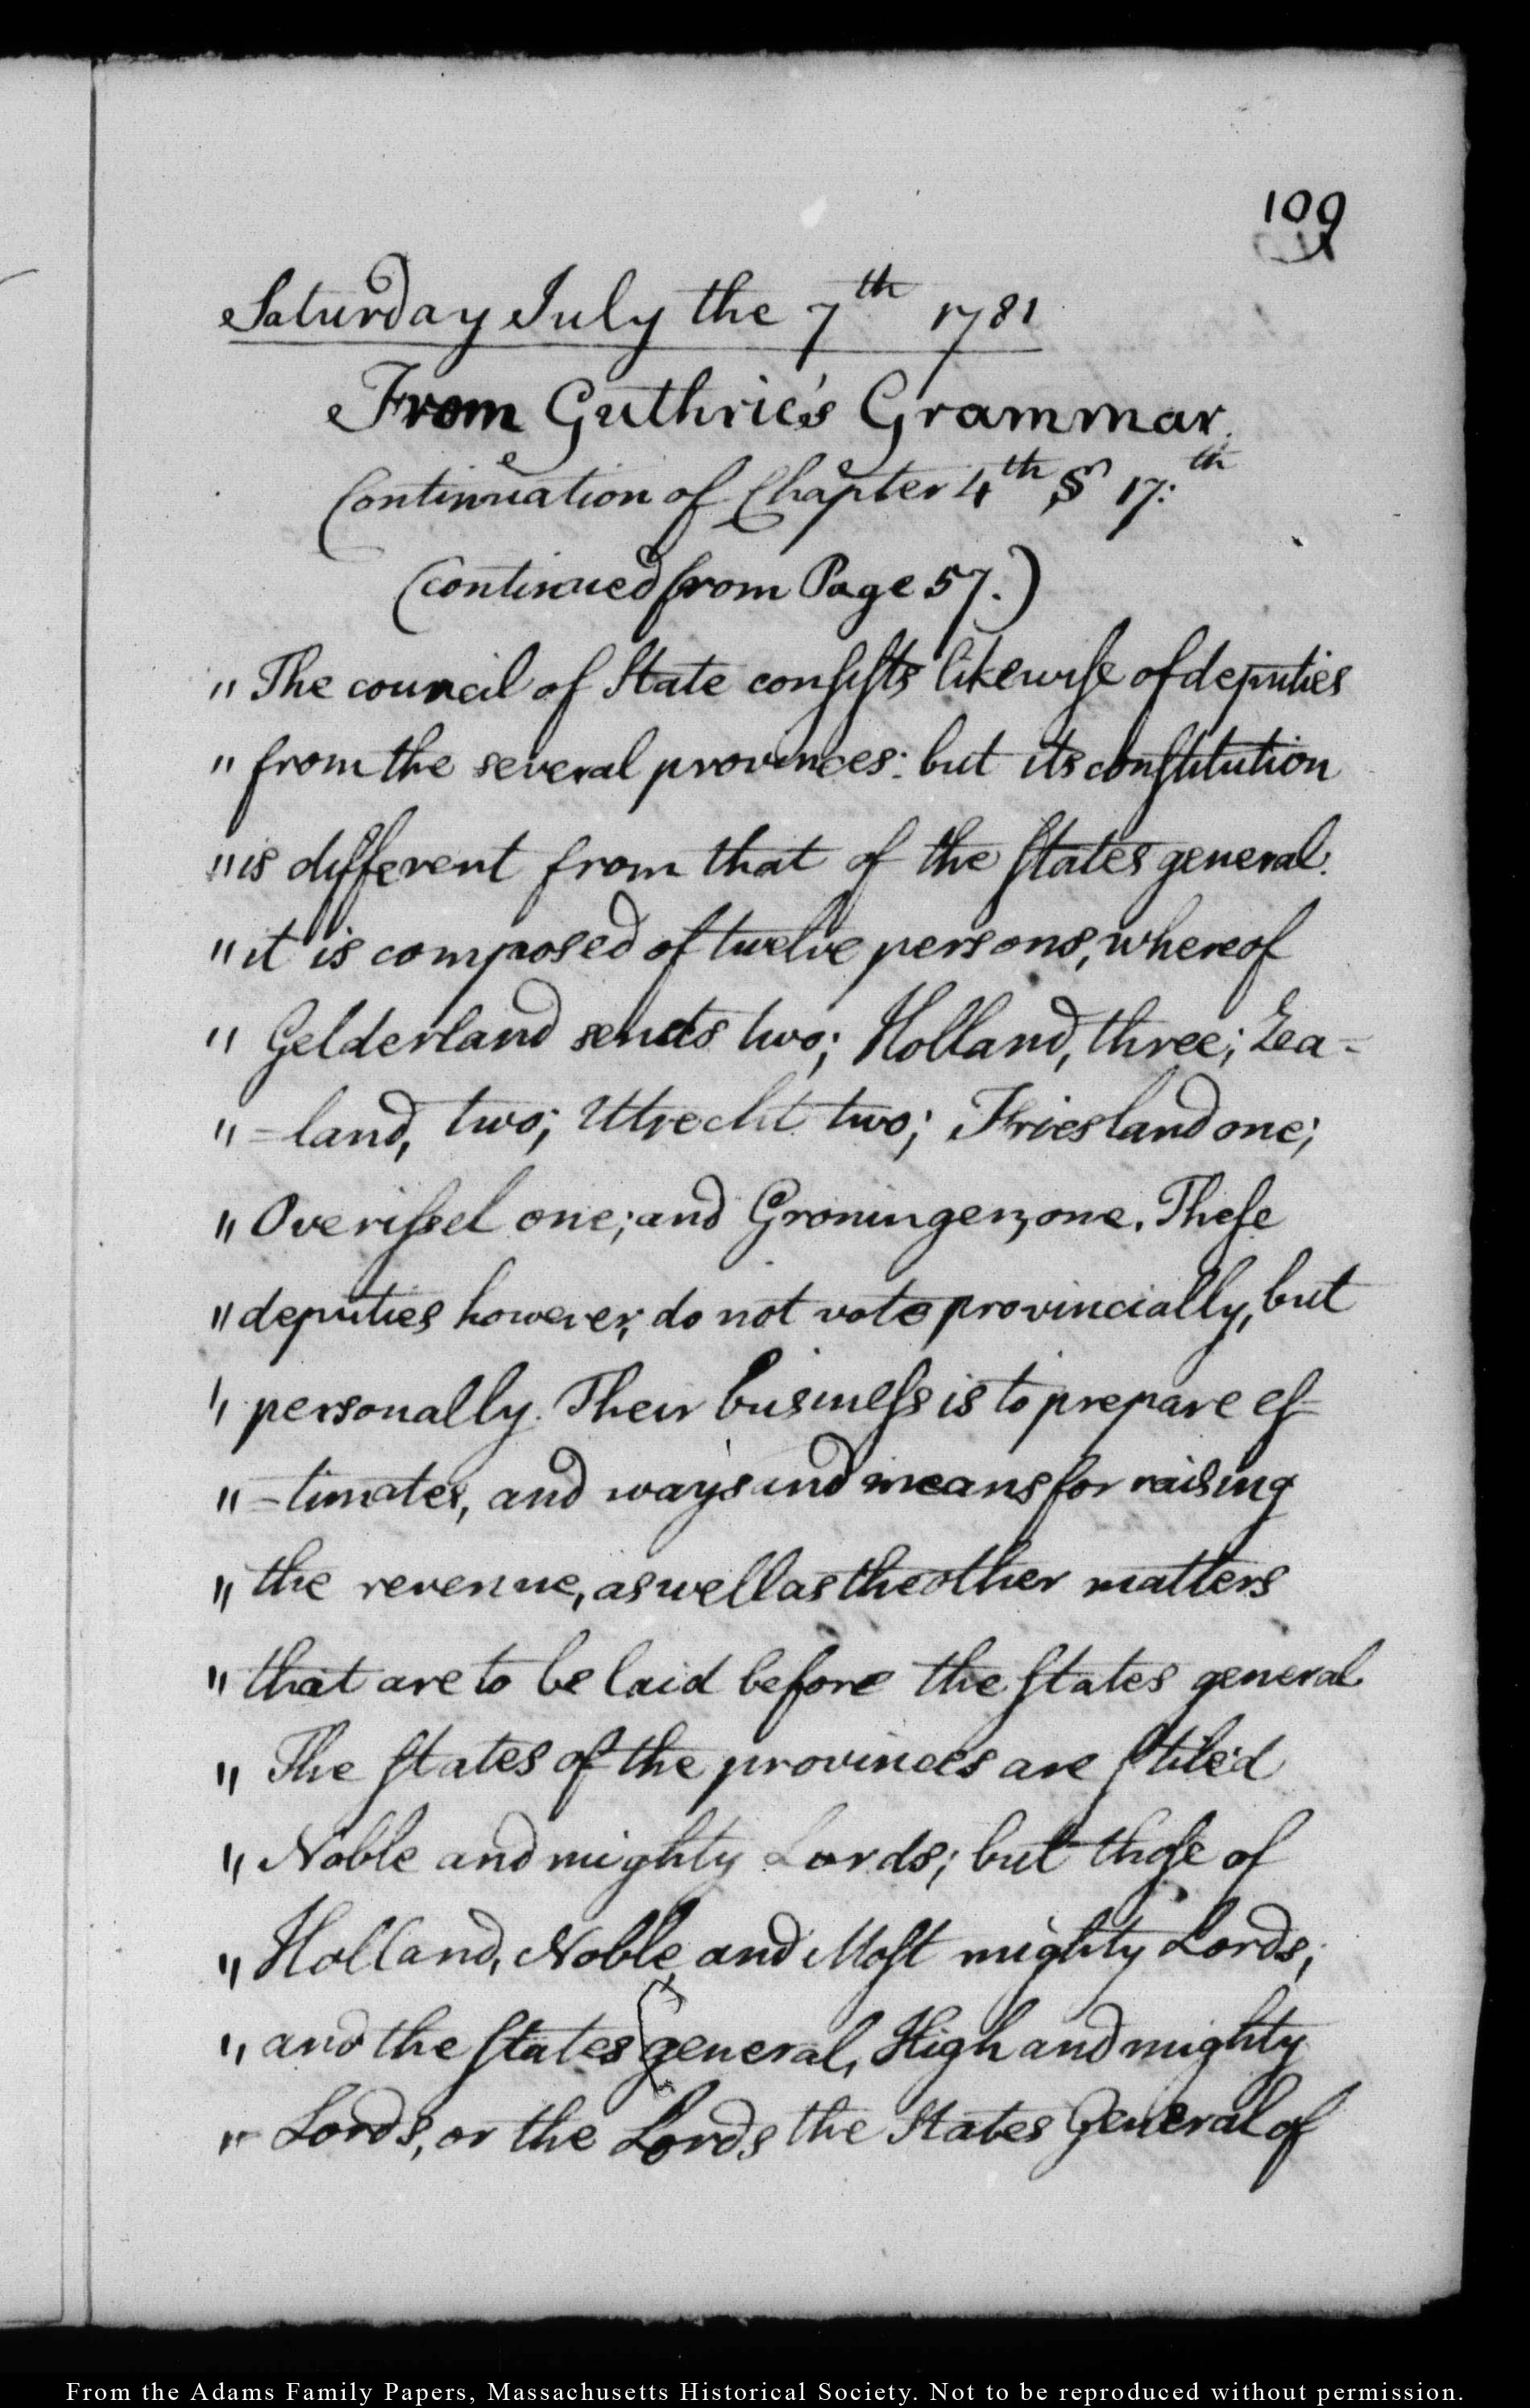 109
Saturday July the 7th 1781
From Guthrie's Grammar.
Continuation of Chapter 4th § 17:th
(continued from Page 57.)
" The council of State consists likewise of deputies
" from the several provinces: but its constitution
" is different from that of the States general.
" it is composed of twelve persons, whereof
" Gelderland sends two; Holland, three; Zea=
" =land, two; Utrecht two; Friesland one;
" Overissel one; and Groningen, one. These
" deputies however, do not vote provincially, but
" personally. Their business is to prepare es=
" =timates, and ways and means for raising
" the revenue, as well as the other matters
" that are to be laid before the States general
" The States of the provinces are stiled
" Noble and mighty Lords; but those of
" Holland, Noble and Most mighty Lords;
" and the States general, High and mighty
" Lords, or the Lords the States General of
From the Adams Family Papers, Massachusetts Historical Society. Not to be reproduced without permission.